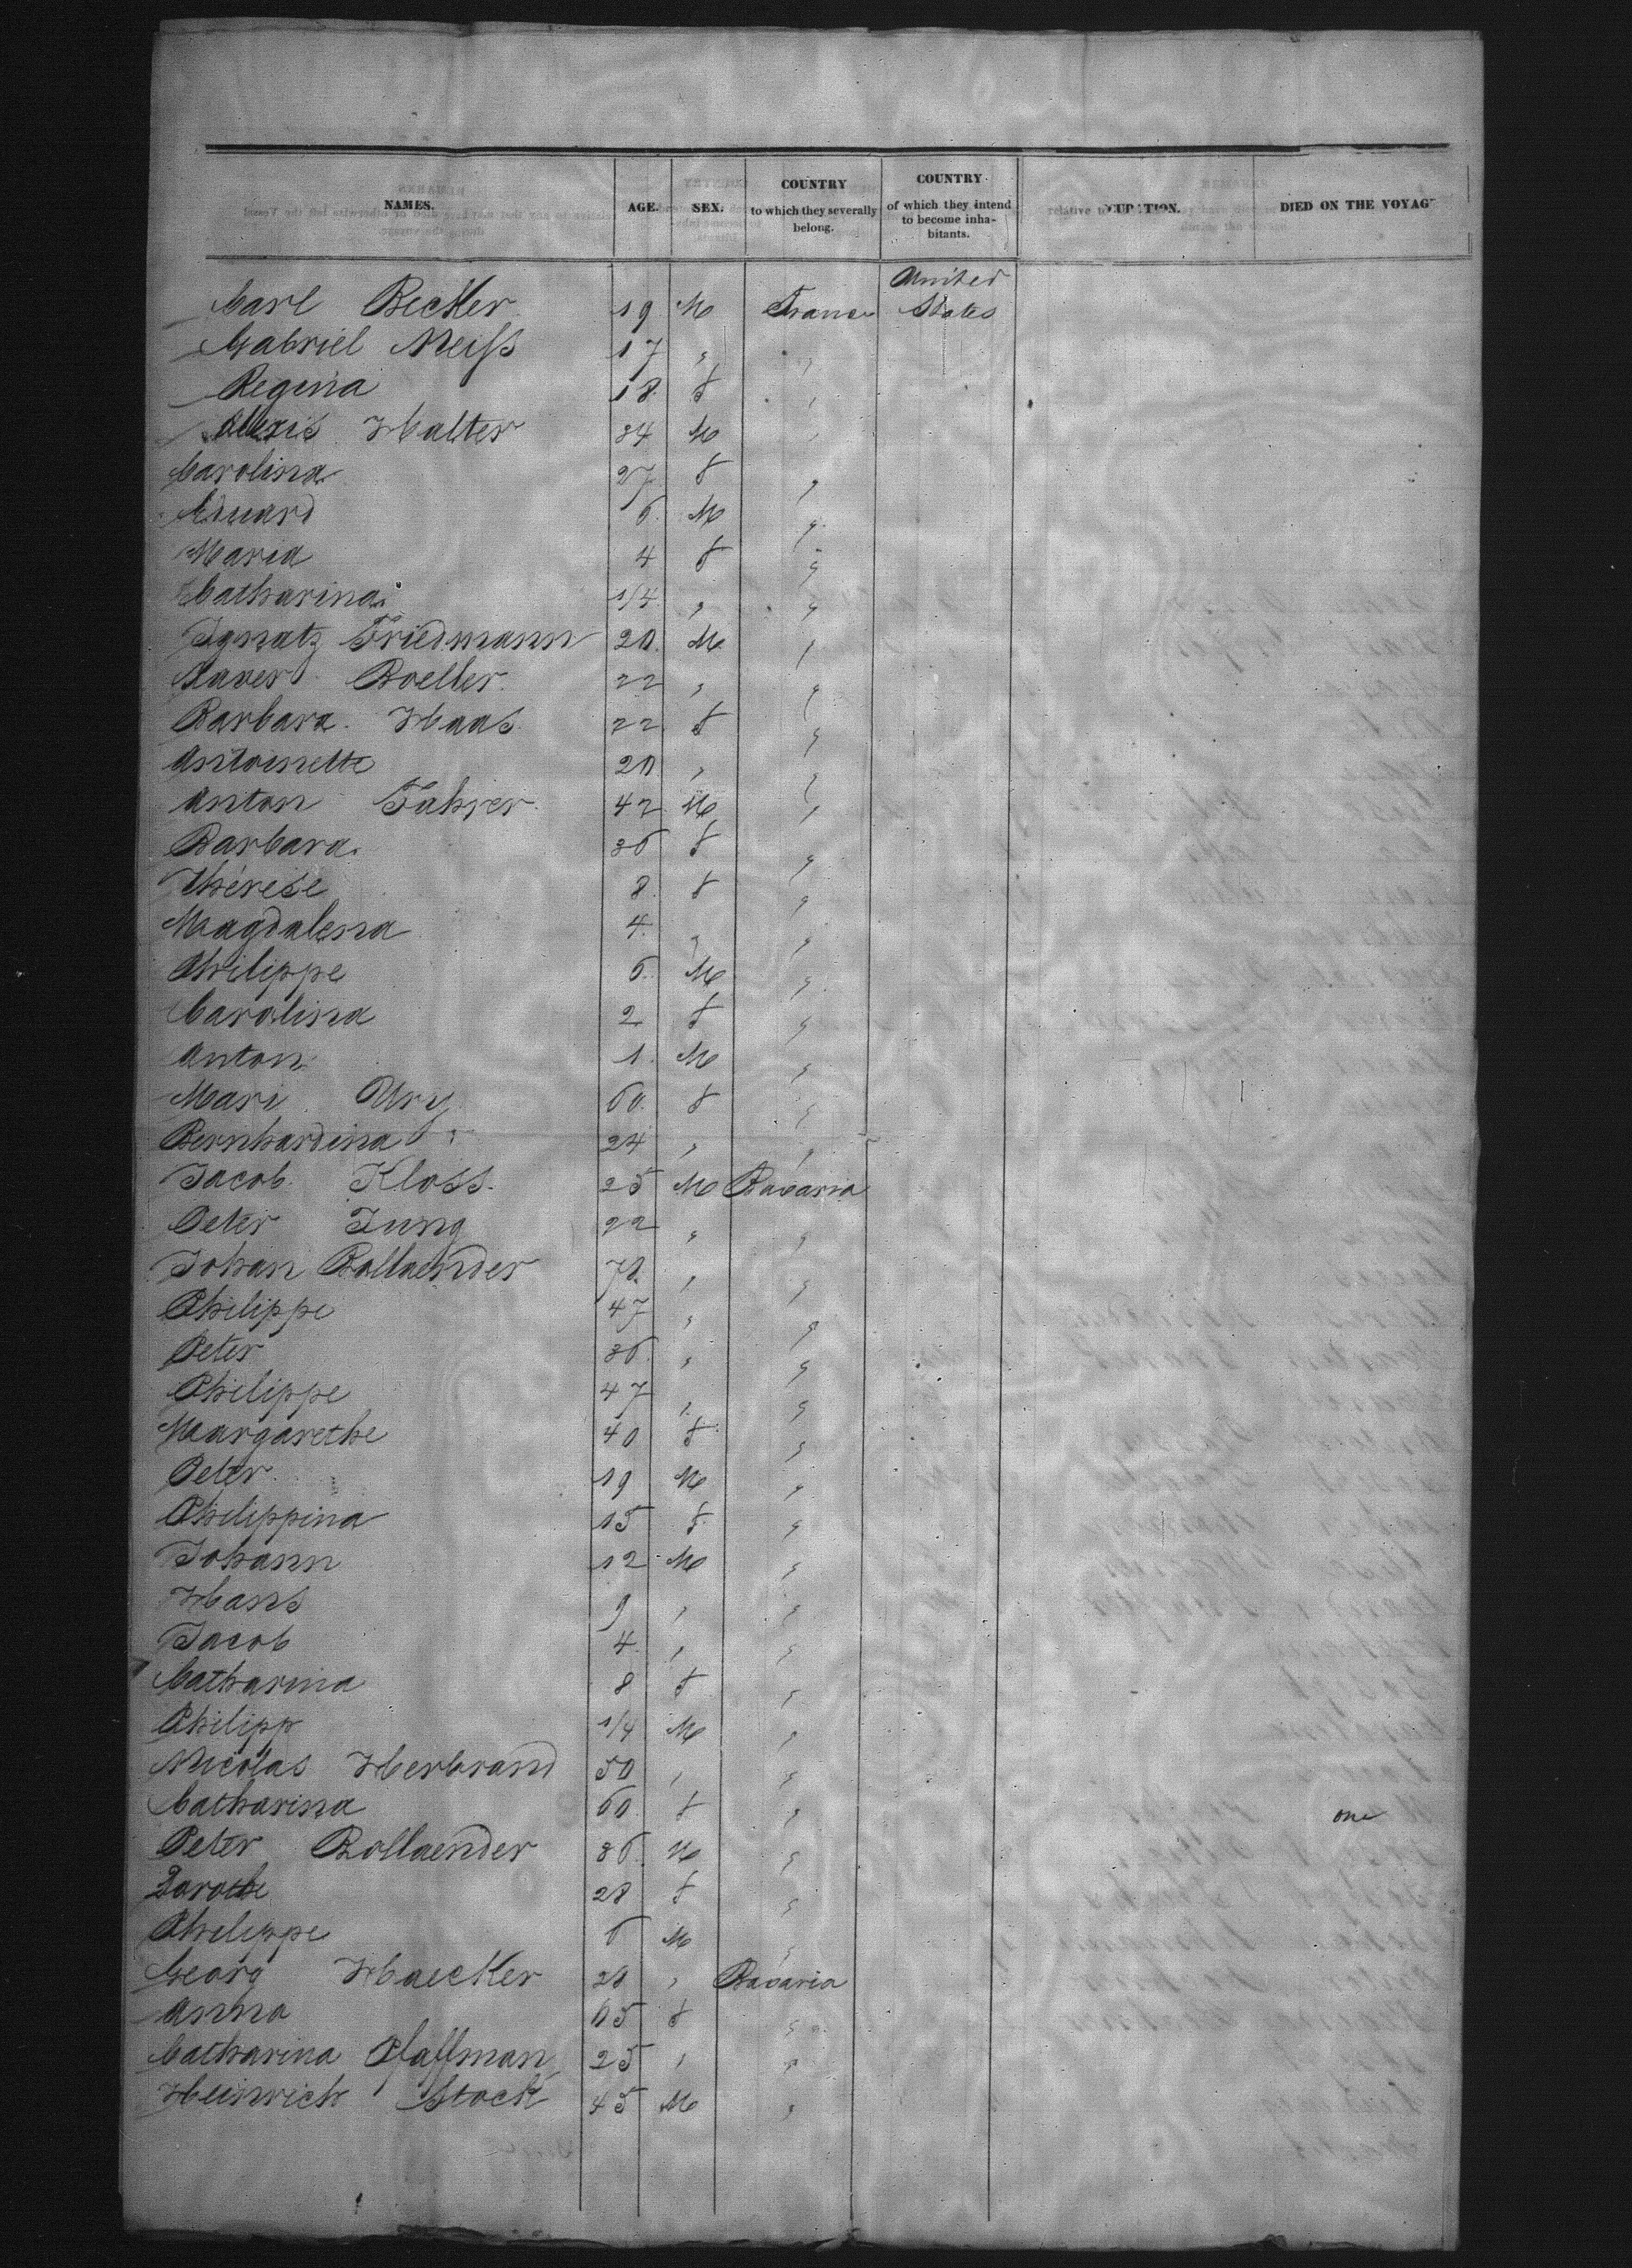 NAMES. AGE. SEX. COUNTRY to which they severally belong. COUNTRY of which they intend to become inhabitants. OCCUPATION. DIED ON THE VOYAGE
United
Carl Becker 19 M France States
Gabriel Meiss 17 " "
Regina 18 f "
Alexis Halter 34 M "
Carolina 27 f "
Eduard 6 M "
Maria 4 f "
Catharina 1/4 " "
Ignatz Friedmann 20 M "
Xaver Boeller 22 " "
Barbara Haas 22 f "
Antoinette 20 " "
Anton Fahrer 42 M "
Barbara 36 f "
Thérese 8 f "
Magdalena 4 " "
Philippe 6 M "
Carolina 2 f "
Anton 1 M "
Mari Ury 60 f "
Bernhardina 24 " "
Jacob Kloss 25 M Bavaria
Peter Jung 22 " "
Johan Bollaender 70 " "
Philippe 47 " "
Peter 36 " "
Philippe 47 " "
Margarethe 40 f "
Peter 19 M "
Philippina 15 f "
Johann 12 M "
Hans 9 " "
Jacob 4 " "
Catharina 8 f "
Philipp 1/4 M "
Nicolas Herbrand 50 " "
Catharina 60 f " one
Peter Bollaender 36 M "
Darothe 28 f "
Philippe 6 M "
Georg Haecker 28 " Bavaria
Anna 65 f "
Catharina Pfaffman 25 " "
Heinrich Stock 45 M "